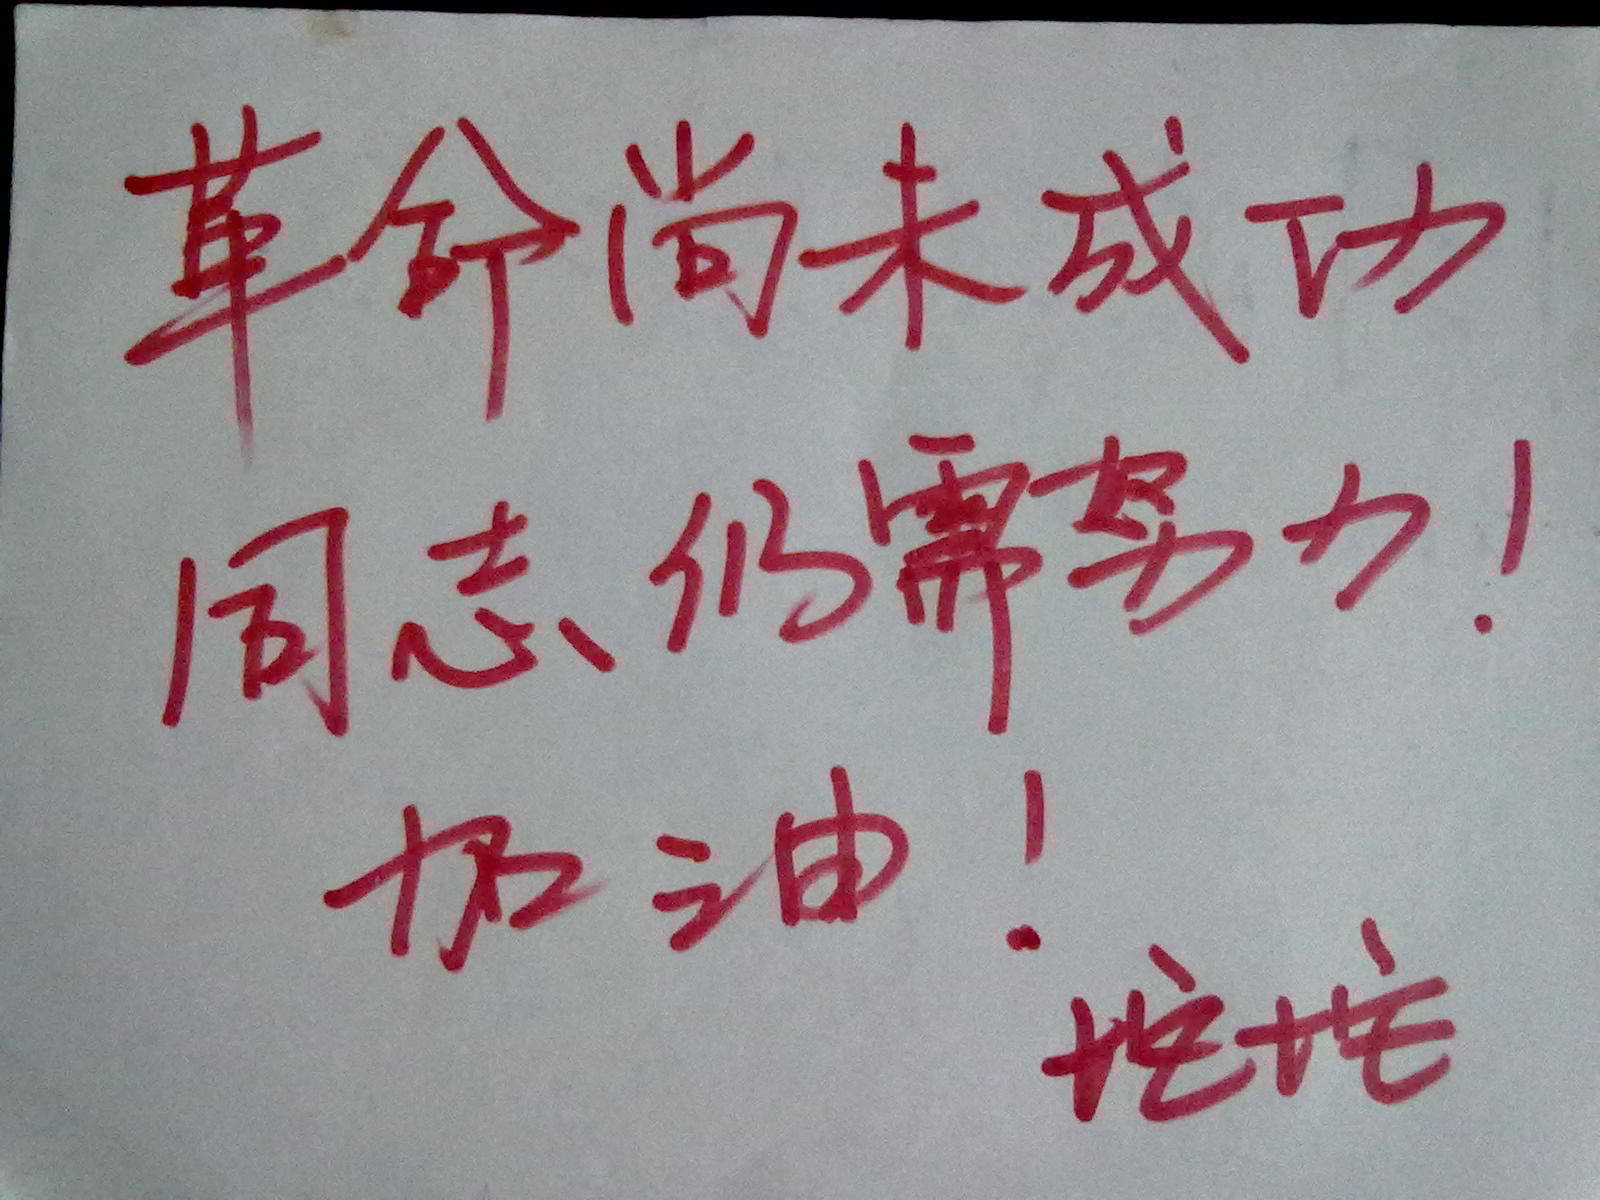 革命尚未成功
同志仍需努力!
加油!
坨坨